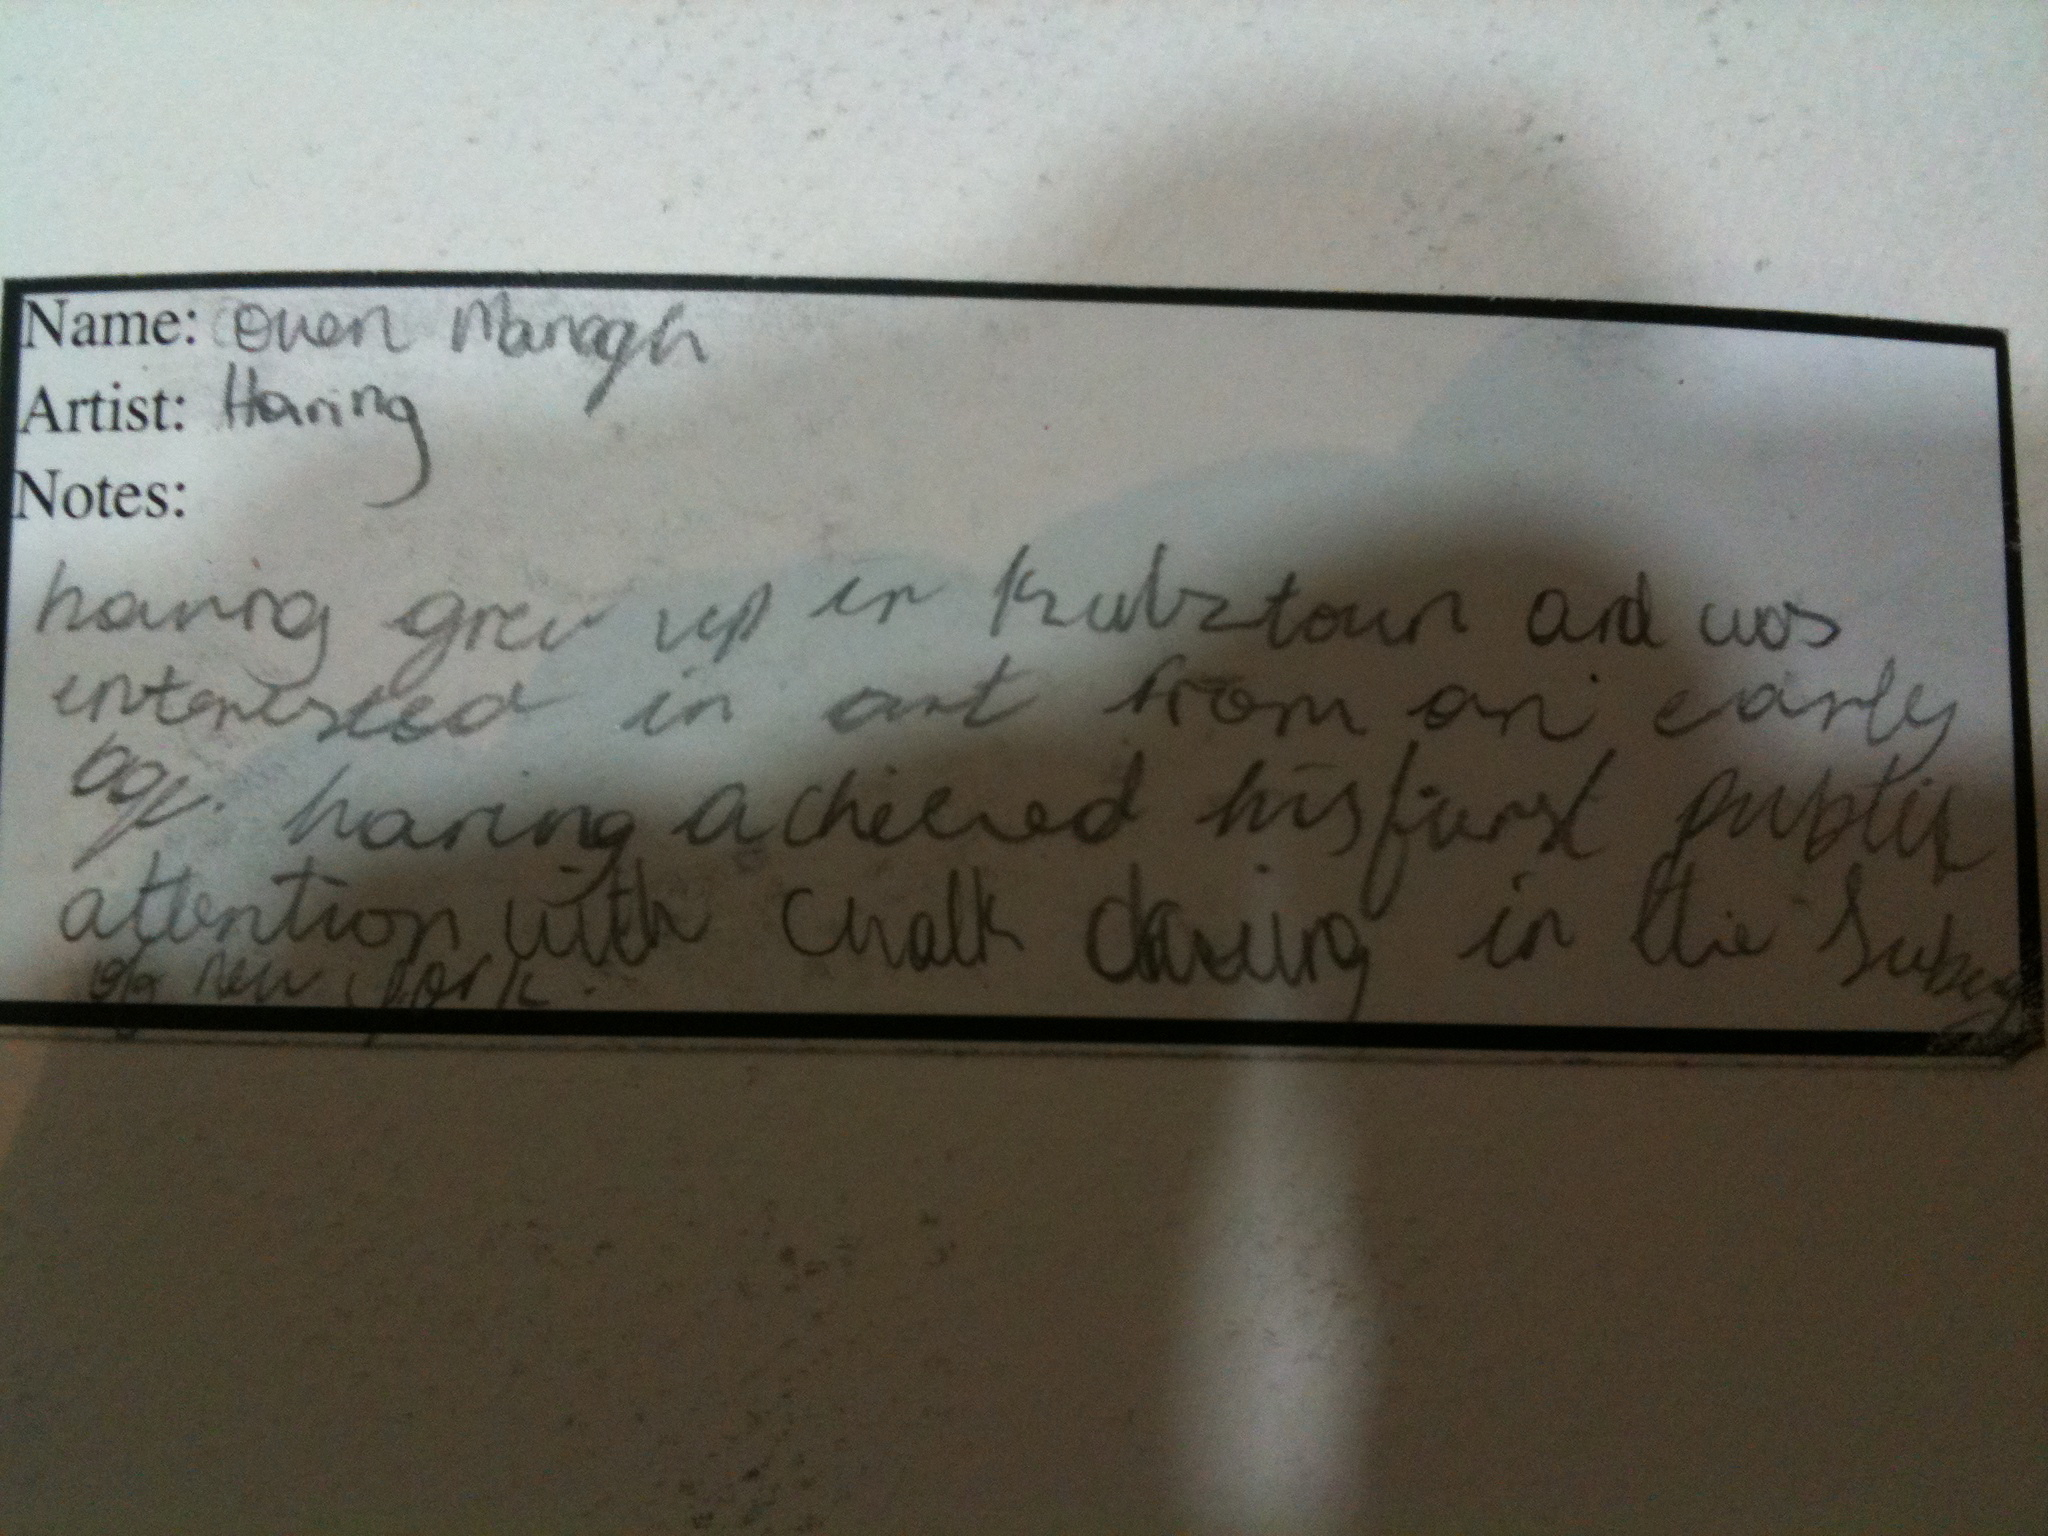 Name: Owen Manogh
Artist: Haring
Notes:
haring grew up in Kubztown and was
interested in art from an early
age. haring achieved his furst public
attention with chalk drawing in the Subway
of new york.